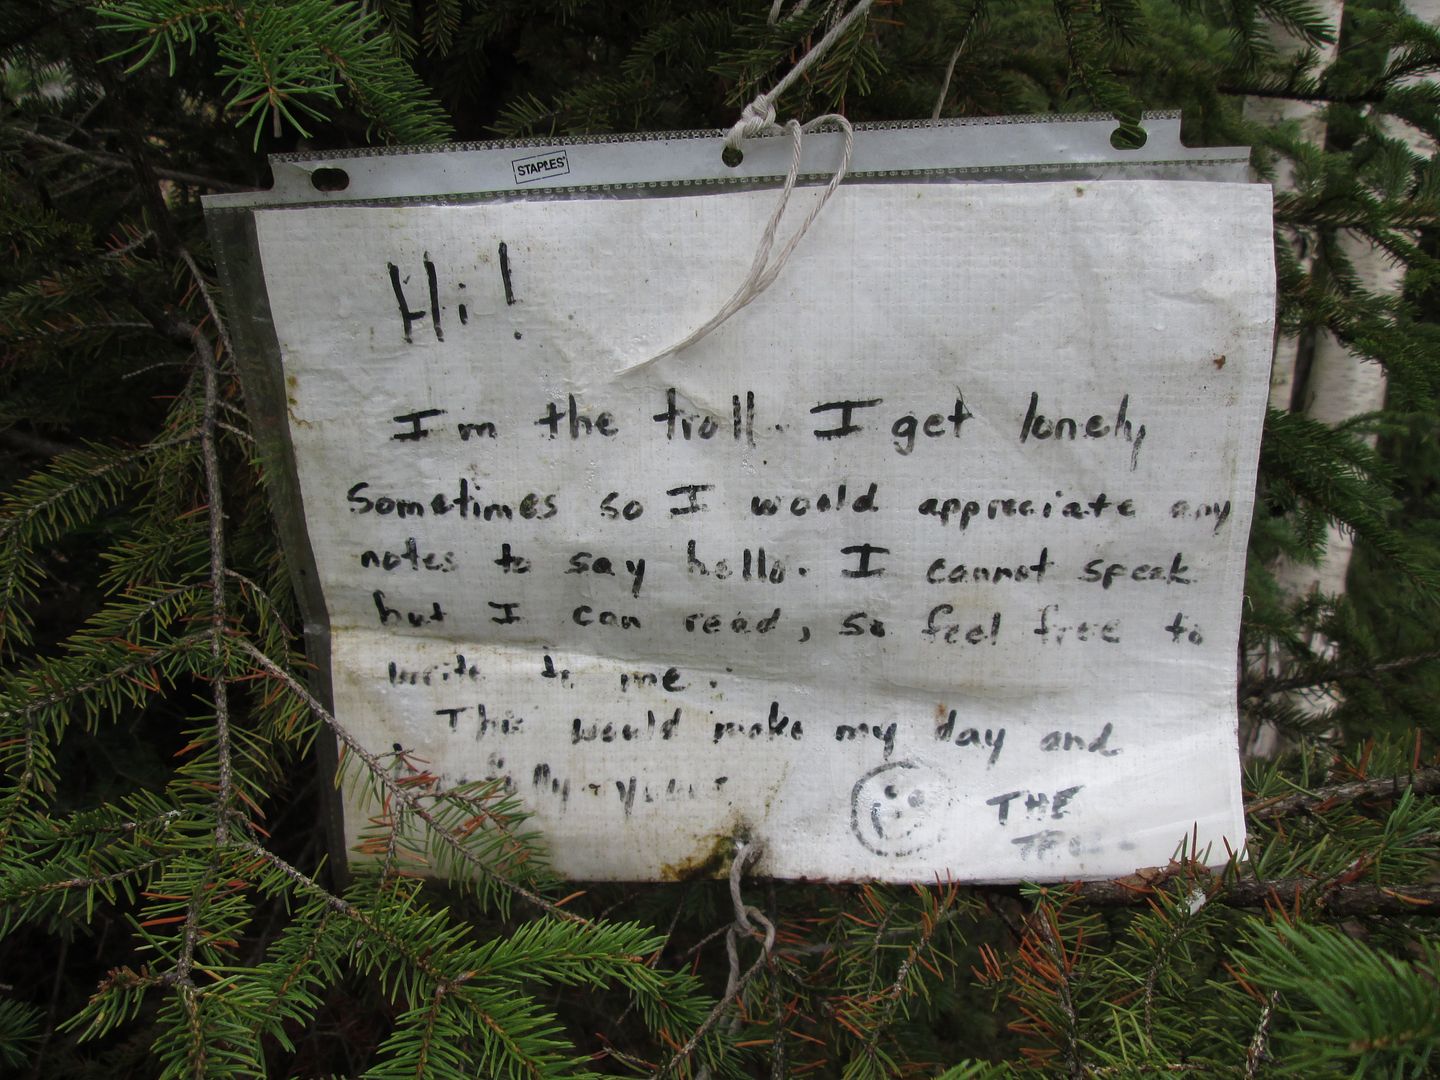 STAPLES
Hi!
I'm the troll. I get lonely
Sometimes so I would appreciate any
notes to say hello. I cannot speak
but I can read, so feel free to
write to me.
This would make my day and
THE